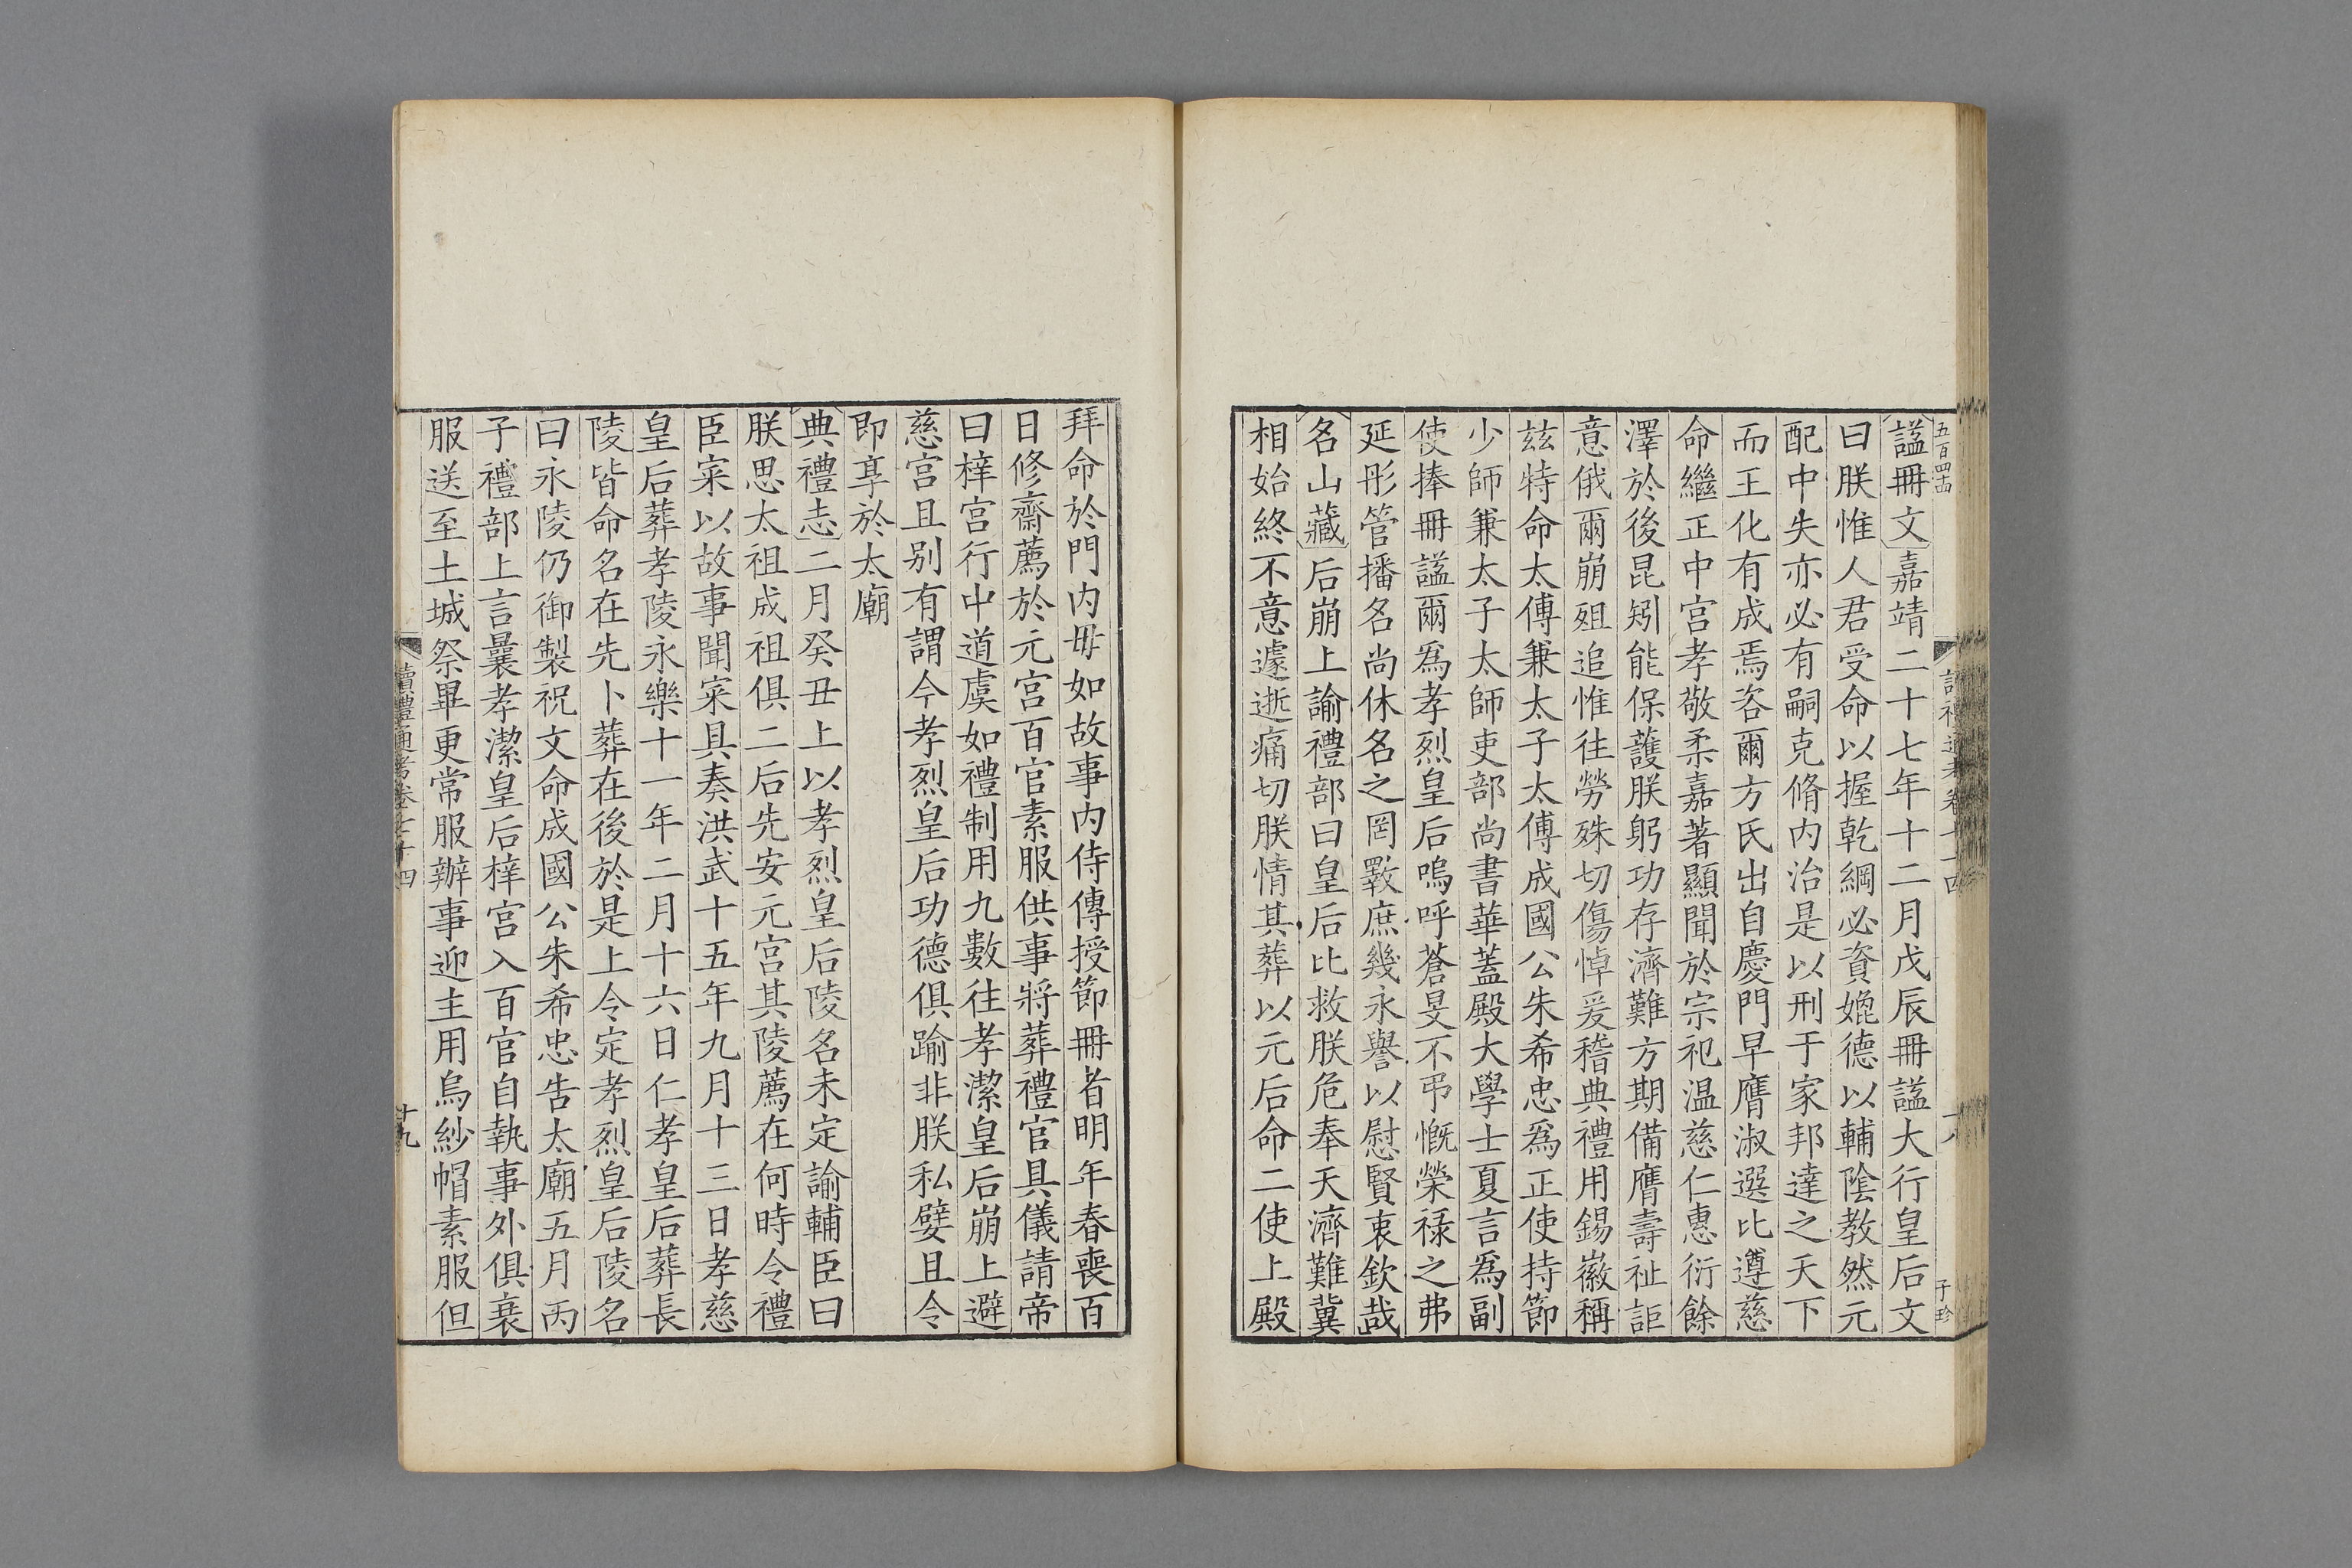 五百四十四
謚冊文嘉靖二十七年十二月戊辰冊謚大行皇后文
曰朕惟人君受命以握乾綱必資嬎德以輔陰教然元
配中失亦必有嗣克脩內治是以刑于家邦達之天下
而王化有成焉咨爾方氏出自慶門早膺淑選比遵慈
命繼正中宮孝敬柔嘉著顯聞於宗祀温慈仁惠衍餘
澤於後昆矧能保護朕躬功存濟難方期備膺壽祉詎
意俄爾崩殂追惟往勞殊切傷悼爰稽典禮用錫徽稱
兹特命太傅兼太子太傅成國公朱希忠爲正使持節
少師兼太子太師吏部尚書華蓋殿大學士夏言爲副
使捧冊謚爾爲孝烈皇后嗚呼蒼旻不弔慨榮禄之弗
延彤管播名尚休名之罔斁庶幾永譽以慰賢衷欽哉
名山藏后崩上諭禮部曰皇后比救朕危奉天濟難冀
相始終不意遽逝痛切朕情其葬以元后命二使上殿
拜命於門内毋如故事内侍傳授節冊者明年春喪百
日修齋薦於元宮百官素服供事將葬禮官具儀請帝
曰梓宮行中道虞如禮制用九數往孝潔皇后崩上避
慈宮且别有謂今孝烈皇后功德俱踰非朕私嬖且令
即享於太廟
典禮志二月癸丑上以孝烈皇后陵名未定諭輔臣曰
朕思太祖成祖俱二后先安元宮其陵薦在何時令禮
臣寀以故事聞寀具奏洪武十五年九月十三日孝慈
皇后葬孝陵永樂十一年二月十六日仁孝皇后葬長
陵皆命名在先卜葬在後於是上令定孝烈皇后陵名
曰永陵仍御製祝文命成國公朱希忠告太廟五月丙
子禮部上言曩孝潔皇后梓宮入百官自執事外俱衰
服送至土城祭畢更常服辦事迎主用烏紗帽素服但
讀禮通考卷七十四
十九